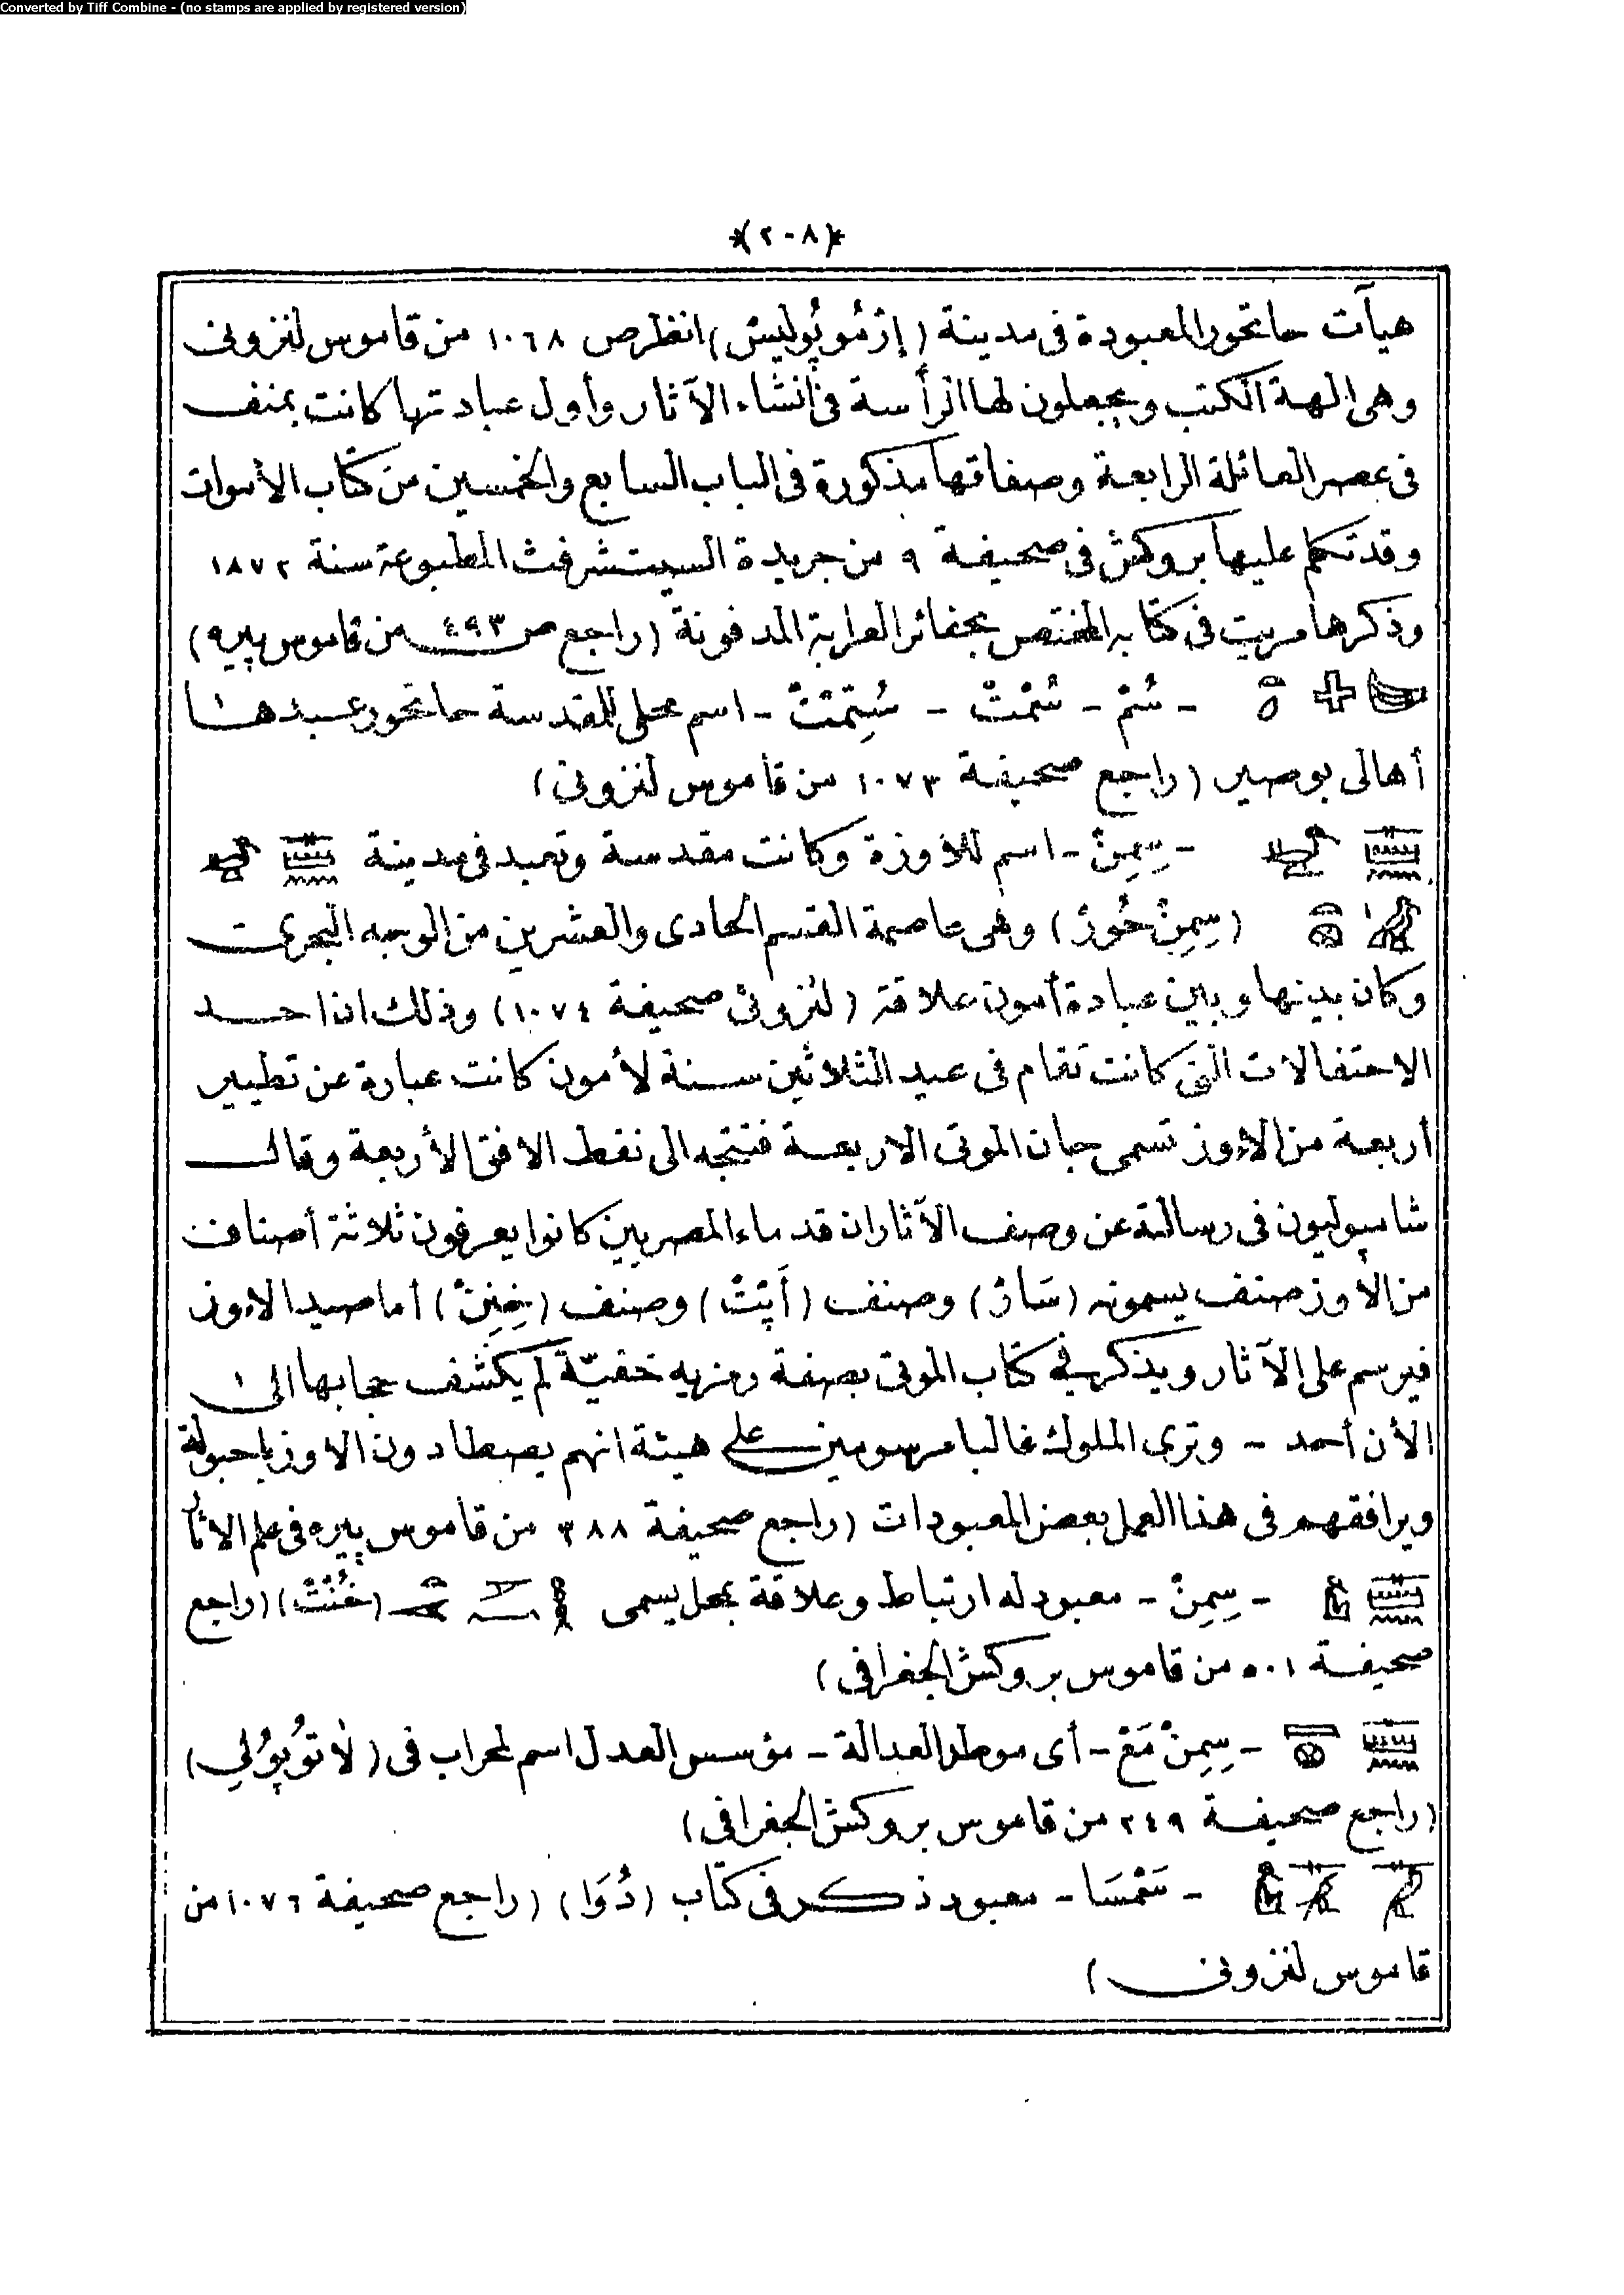 Converted by Tiff Combine - (no stamps are applied by registered version)
*(٢٠٨)*
هيآت حاتحور المعبودة فى مدينة (إرْمُوپُوليسْ) انظر ص ١٠٦٨ من قاموس لنزونى
وهى الهة الكتب ويجعلون لها الرأسة فى أنشاء الآثار وأول عبادتها كانت بمنف
فى عصر العائلة الرابعة وصفاتها مذكورة فى الباب السابع والخمسين من كتاب الأموات
وقد تكلم عليها بروكش فى صحيفة ٩ من جريدة السيتشرفت المطبوعة سنة ١٨٧٢
وذكرها مريت فى كتابه المختص بحفائر العرابة المدفونة (راجع ص ٤٩٣ من قاموس پيره)
- سُمْ - سُمْتْ - سُتِمْتْ - اسم محلى للمقدسة حاتحور عبدها
أهالى بوصير (راجع صحيفة ١٠٧٣ من قاموس لنزونى)
- سِمِنْ - اسم للأوزة وكانت مقدسة وتعبد فى مدينة
(سِمِنْ حُورْ) وهى عاصمة القسم الحادى والعشرين من الوجه البحرى
وكان بينها وبين عبادة أمون علاقة (لنزونى صحيفة ١٠٧٤) وذلك ان احد
الاحتفالات التى كانت تقام فى عيد الثلاثين سنة لأمون كانت عبارة عن تطيير
أربعة من الأوز تسمى جبان الموتى الاربعة فتتجه الى نقط الافق الأربعة وقال
شامپوليون فى رسالة عن وصف الآثار ان قدماء المصريين كانوا يعرفون ثلاثة أصناف
من الأوز صنف يسمونه (سَارْ) وصنف (أَپِتْ) وصنف (خِنِنْ) أما صيد الاوز
فيرسم على الآثار ويذكر فى كتاب الموتى بصفة رمزيه خفيّة لم يكشف حجابها الى
الأن أحد - وترى الملوك غالبا مرسومين على هيئة انهم يصطادون الاوز باحبولة
ويرافقهم فى هذا العمل بعض المعبودات (راجع صحيفة ٣٨٨ من قاموس پيره فى علم الاثار
- سِمِنْ - معبود له ارتباط وعلاقة بمحل يسمى (خُنْتْ) (راجع
صحيفة ٥٠١ من قاموس بروكش الجغرافى)
- سِمِنْ مَعْ - أى موطد العدالة - مؤسس العدل اسم لمحراب فى (لَاتُوپُولي)
(راجع صحيفة ٢٤٩ من قاموس بروكش الجغرافى)
- سَمْسَا - معبود ذكر فى كتاب (دُوَا) (راجع صحيفة ١٠٧٦ من
قاموس لنزونى)